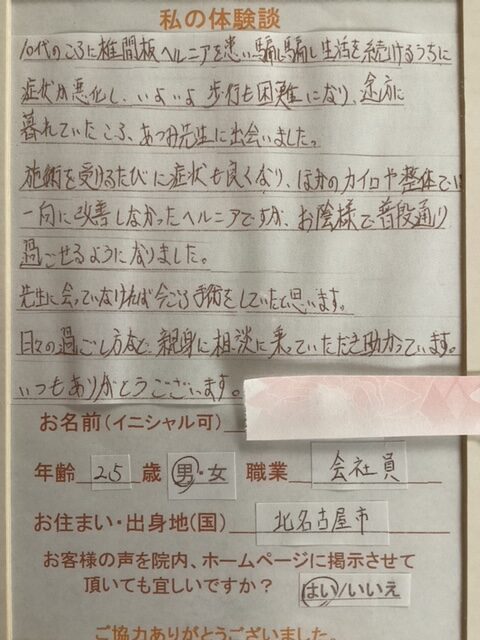 私の体験談
10代のころに椎間板ヘルニアを患い騙し騙し生活を続けるうちに
症状が悪化し、いよいよ歩行も困難になり、途方に
暮れていたころ、あつみ先生に出会いました。
施術を受けるたびに症状も良くなり、ほかのカイロや整体では
一向に改善しなかったヘルニアですが、お陰様で普段通り
過ごせるようになりました。
先生に会っていなければ今ごろ手術をしていたと思います。
日々の過ごし方など親身に相談に乗っていただき助かっています。
いつもありがとうございます。
お名前(イニシャル可)
年齢 25 歳 男・女 職業 会社員
お住まい・出身地(国) 北名古屋市
お客様の声を院内、ホームページに掲示させて
頂いても宜しいですか? はい/いいえ
ご協力ありがとうございました。